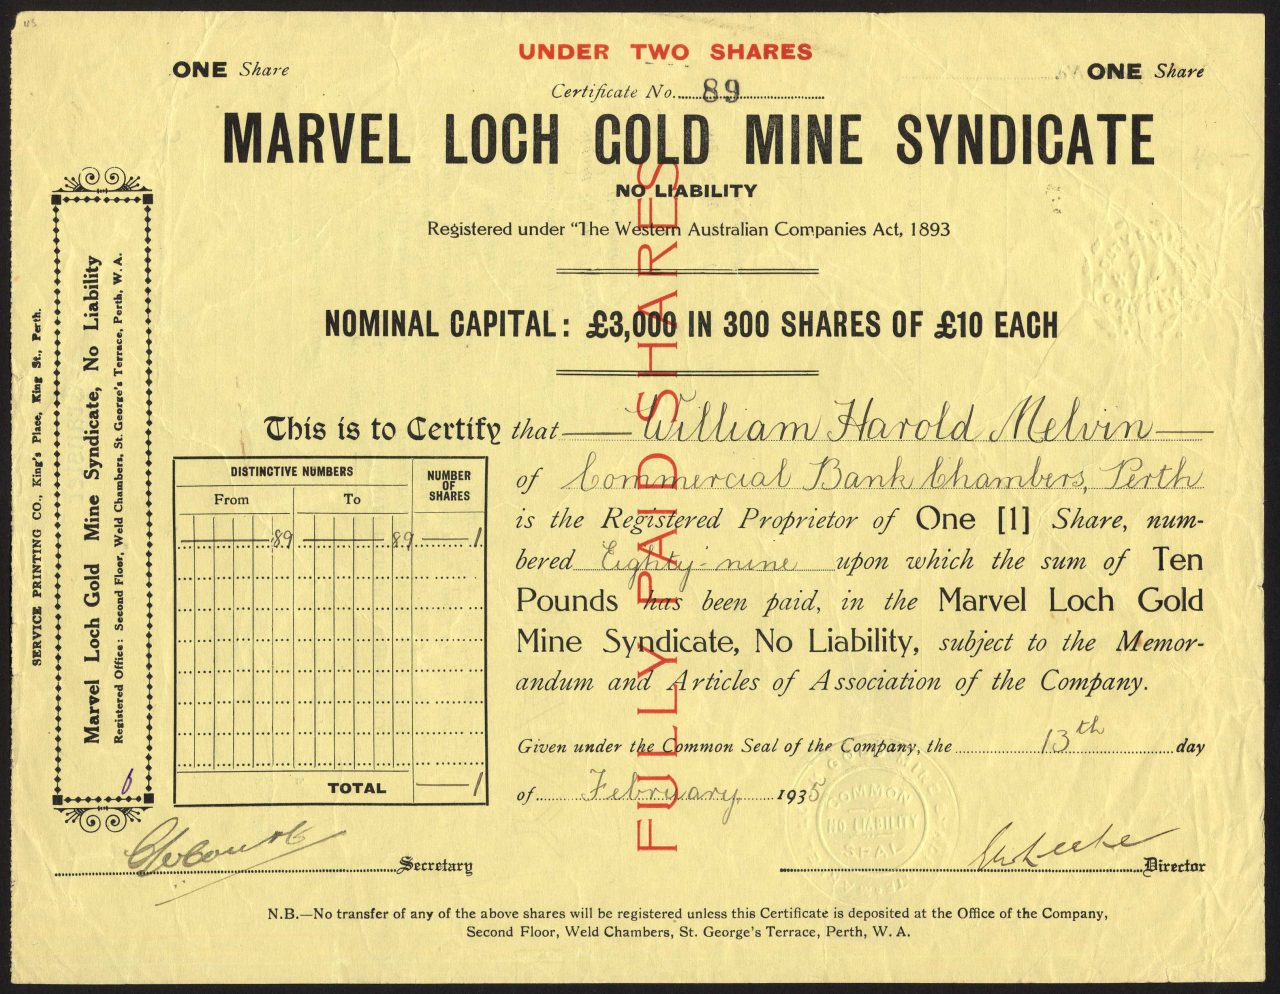 UNDER TWO SHARES
ONE Share
ONE Share
Certificate No. 89
MARVEL LOCH GOLD MINE SYNDICATE
NO LIABILITY
Registered under "The Western Australian Companies Act, 1893
NOMINAL CAPITAL: £3,000 IN 300 SHARES OF £10 EACH
FULLY PAID SHARES
SERVICE PRINTING CO., King's Place, King St., Perth.
Marvel Loch Gold Mine Syndicate, No Liability
Registered Office: Second Floor, Weld Chambers, St. George's Terrace, Perth, W. A.
This is to Certify that William Harold Melvin
of Commercial Bank Chambers, Perth
is the Registered Proprietor of One [1] Share, num-
bered Eighty-nine upon which the sum of Ten
Pounds has been paid, in the Marvel Loch Gold
Mine Syndicate, No Liability, subject to the Memor-
andum and Articles of Association of the Company.
DISTINCTIVE NUMBERS
NUMBER OF SHARES
From
To
89 89 1
TOTAL 1
Given under the Common Seal of the Company, the 13th day
of February 1935
COMMON
NO LIABILITY
SEAL
Secretary
Director
N.B.—No transfer of any of the above shares will be registered unless this Certificate is deposited at the Office of the Company,
Second Floor, Weld Chambers, St. George's Terrace, Perth, W. A.